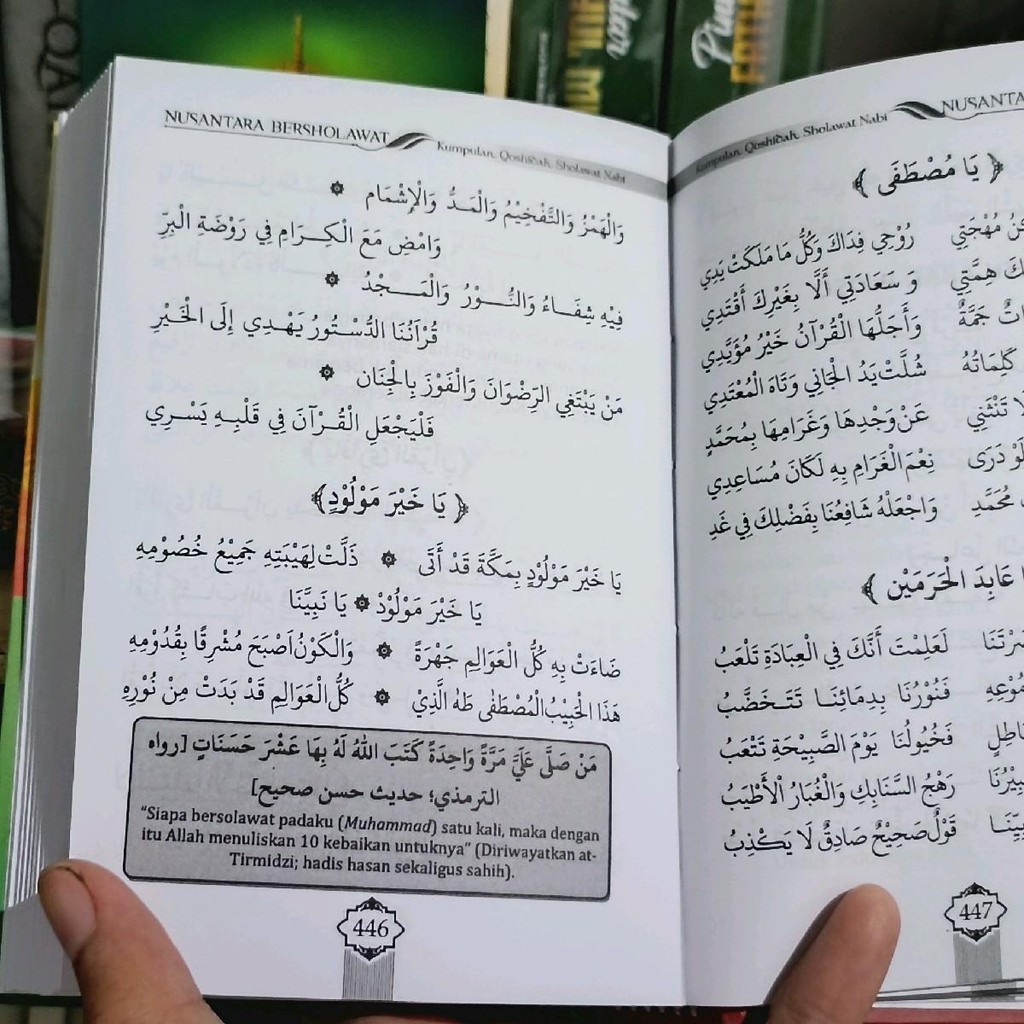 NUSANTARA BERSHOLAWAT
Kumpulan, Qoshidah, Sholawat Nabi
وَالْهَمْزُ وَالتَّفْخِيْمُ وَالْمَدُّ وَالْإِشْمَام ۞
وَامْضِ مَعَ الْكِرَامِ فِي رَوْضَةِ الْبِرِّ
فِيْهِ شِفَاءُ وَالنُّوْرُ وَالْمَجْدُ ۞
قُرْآنُنَا الدُّسْتُورُ يَهْدِي إِلَى الْخَيْرِ
مَنْ يَبْتَغِي الرِّضْوَانَ وَالْفَوْزَ بِالْجِنَان ۞
فَلْيَجْعَلِ الْقُرْآنَ فِي قَلْبِهِ يَسْرِي
﴿ يَا خَيْرَ مَوْلُوْدٍ ﴾
يَا خَيْرَ مَوْلُوْدٍ بِمَكَّةَ قَدْ أَتَى ۞ ذَلَّتْ لِهَيْبَتِهِ جَمِيْعُ خُصُوْمِهِ
يَا خَيْرَ مَوْلُوْدْ ۞ يَا نَبِيَّنَا
ضَاءَتْ بِهِ كُلُّ الْعَوَالِمِ جَهْرَةً ۞ وَالْكَوْنُ اَصْبَحَ مُشْرِقًا بِقُدُوْمِهِ
هَذَا الْحَبِيْبُ الْمُصْطَفٰى طٰهٰ الَّذِيْ ۞ كُلُّ الْعَوَالِمِ قَدْ بَدَتْ مِنْ نُوْرِهِ
مَنْ صَلَّى عَلَيَّ مَرَّةً وَاحِدَةً كَتَبَ اللهُ لَهُ بِهَا عَشْرَ حَسَنَاتٍ [رواه
الترمذي؛ حديث حسن صحيح]
"Siapa bersolawat padaku (Muhammad) satu kali, maka dengan
itu Allah menuliskan 10 kebaikan untuknya" (Diriwayatkan at-
Tirmidzi; hadis hasan sekaligus sahih).
446
Kumpulan, Qoshidah, Sholawat Nabi
﴿ يَا مُصْطَفَى ﴾
مُهْجَتِي رُوْحِي فِدَاكَ وَكُلُّ مَا مَلَكَتْ يَدِي
هِمَّتِي وَ سَعَادَتِي أَلَّا بِغَيْرِكَ أَقْتَدِي
جَمَّةٌ وَأَجَلُّهَا الْقُرْآنُ خَيْرُ مُؤَيِّدِي
كَلِمَاتُهُ شُلَّتْ يَدُ الْجَانِي وَتَاهَ الْمُعْتَدِي
تَنْثَنِي عَنْ وَجْدِهَا وَغَرَامِهَا بِمُحَمَّدٍ
دَرَى نِعْمَ الْغَرَامِ بِهِ لَكَانَ مُسَاعِدِي
مُحَمَّدِ وَاجْعَلْهُ شَافِعُنَا بِفَضْلِكَ فِي غَدِ
عَابِدَ الْحَرَمَيْن ﴾
لَعَلِمْتَ أَنَّكَ فِي الْعِبَادَةِ تَلْعَبُ
فَنُحُوْرُنَا بِدِمَائِنَا تَتَخَضَّبُ
فَخُيُولُنَا يَوْمَ الصَّبِيْحَةِ تَتْعَبُ
رَهْجُ السَّنَابِكِ وَالْغُبَارُ الْأَطْيَبُ
قَوْلٌ صَحِيْحٌ صَادِقٌ لَا يَكْذِبُ
447